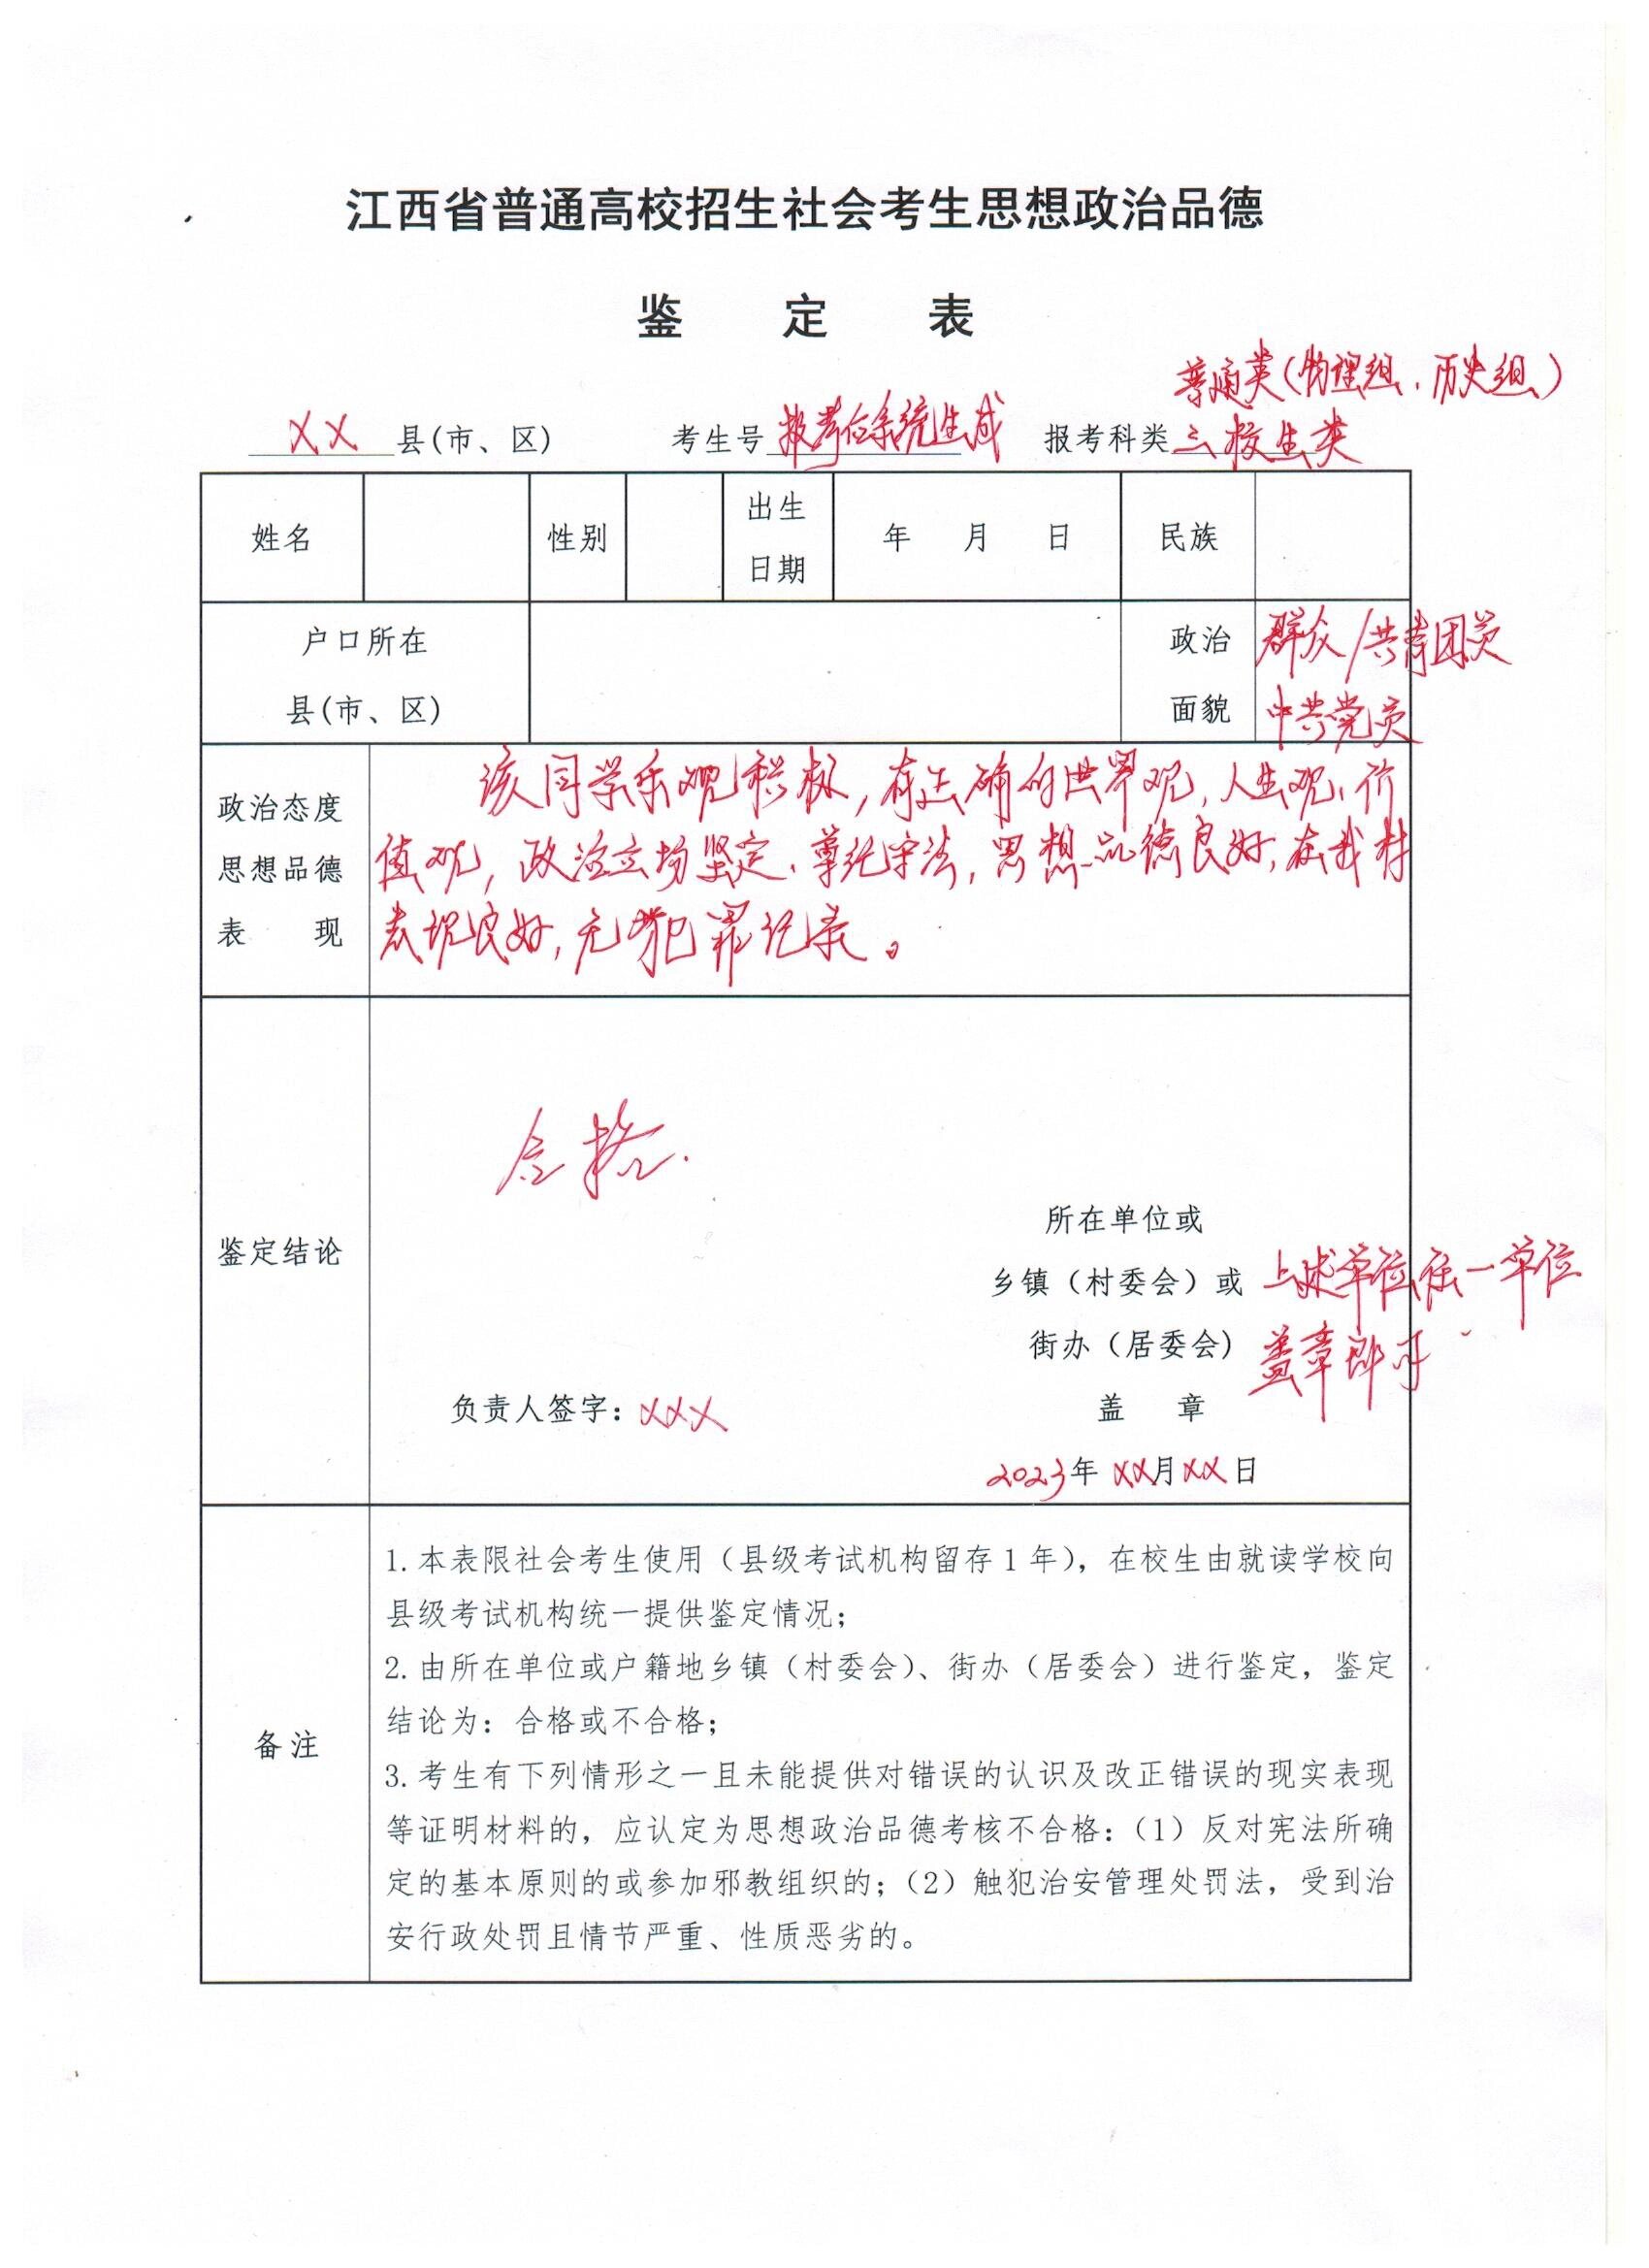 江西省普通高校招生社会考生思想政治品德
鉴 定 表
普通类(物理组、历史组)
XX 县(市、区) 考生号 报考后系统生成 报考科类 三校生类
姓名 性别 出生日期 年 月 日 民族
户口所在 政治 群众/共青团员
县(市、区) 面貌 中共党员
该同学乐观积极,有正确的世界观,人生观、价
政治态度
值观,政治立场坚定、遵纪守法,思想品德良好,在我村
思想品德
表现良好,无犯罪记录。
表 现
合格.
所在单位或
鉴定结论
乡镇(村委会)或 上述单位任一单位
街办(居委会) 盖章即可
负责人签字:XXX 盖 章
2023年XX月XX日
1.本表限社会考生使用(县级考试机构留存1年),在校生由就读学校向
县级考试机构统一提供鉴定情况;
2.由所在单位或户籍地乡镇(村委会)、街办(居委会)进行鉴定,鉴定
结论为:合格或不合格;
备注
3.考生有下列情形之一且未能提供对错误的认识及改正错误的现实表现
等证明材料的,应认定为思想政治品德考核不合格:(1)反对宪法所确
定的基本原则的或参加邪教组织的;(2)触犯治安管理处罚法,受到治
安行政处罚且情节严重、性质恶劣的。